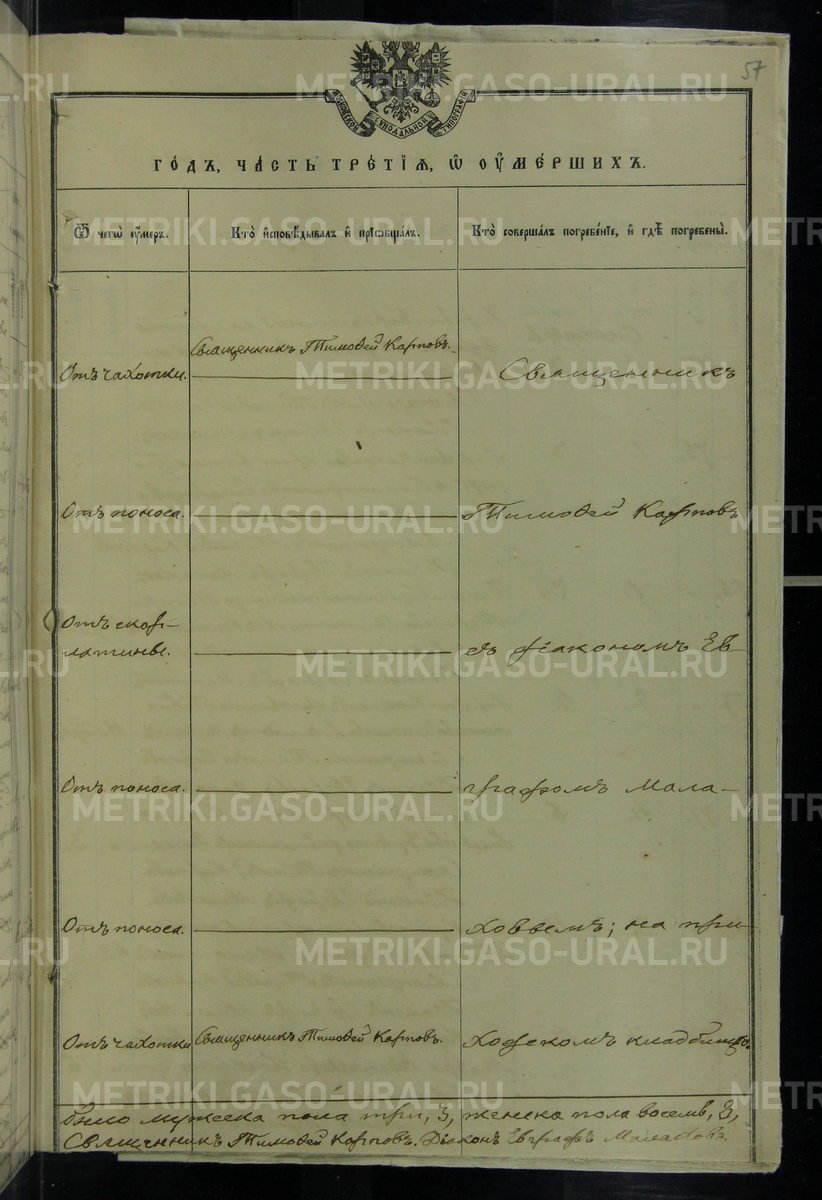 57
МОСКОВСКОЙ СѴНОДАЛЬНОЙ ТИПОГРАФІИ
ГО́ДЪ, ЧА́СТЬ ТРЕ́ТІѦ, Ѿ ОУ҆МЕ́РШИХЪ.
Ѿ чегѡ̀ оу҆ме́ръ.
Кто̀ и҆сповѣ́дывалъ и҆ прїѡбща́лъ.
Кто̀ соверша́лъ погребе́нїе, и҆ гдѣ̀ погребены̀.
Священникъ Тимоѳей Карповъ.
Отъ чахотки.
Священникъ
Отъ поноса.
Тимоѳей Карповъ
Отъ скар-
латины.
съ діакономъ Ев-
Отъ поноса.
графомъ Мала-
Отъ поноса.
ховвемъ; на при-
Отъ чахотки
Священникъ Тимоѳей Карповъ.
ходскомъ кладбищѣ.
было мужеска пола три, 3, женска пола восемь, 8,
Священникъ Тимоѳей Карповъ. Діаконъ Евграфъ Малаховъ.
METRIKI.GASO-URAL.RU